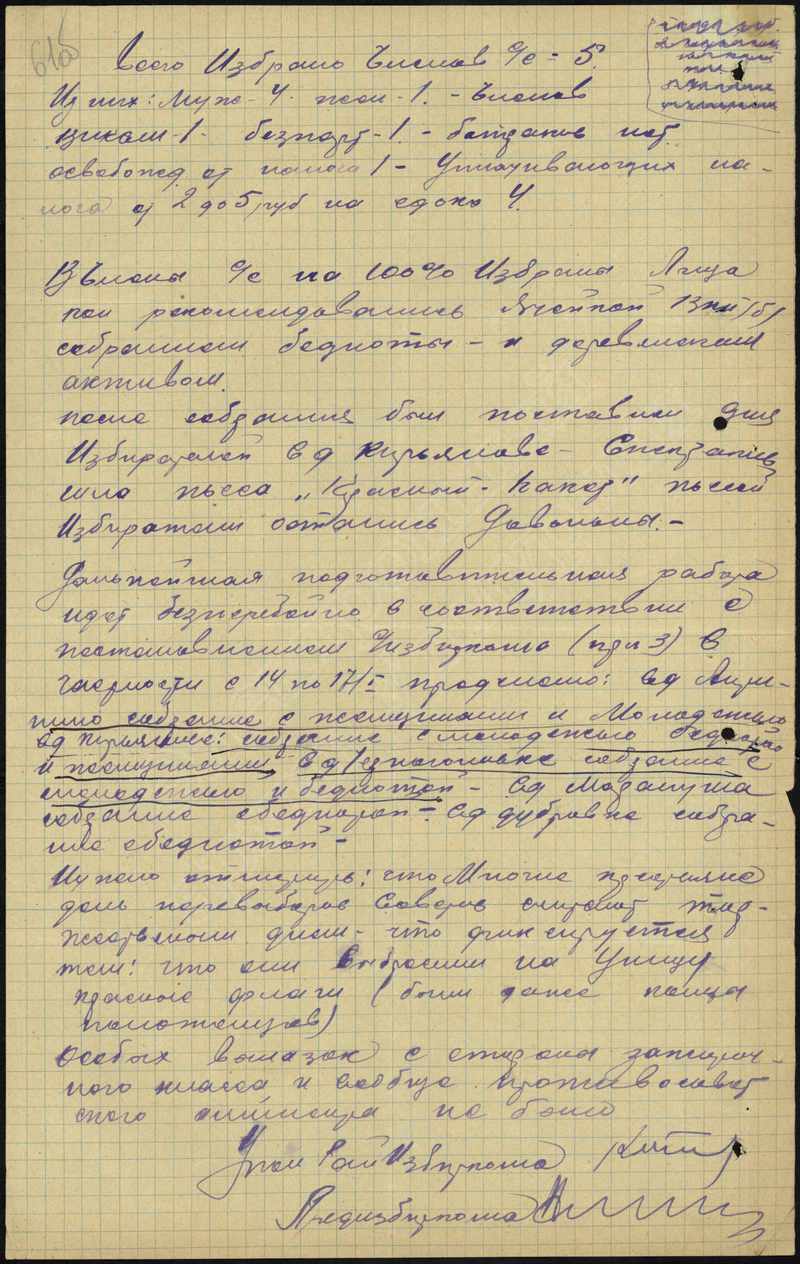 61об
Всего Избрано Членов с/с = 5.
Из них: Муж - 4. жен - 1. - Членов
1 - безпарт - 1. - батраков нет.
освобожд от налога 1 - Уплачивающих на-
лога от 2 до 5 руб на едока 4.
В Члены с/с на 100% Избраны Лица
кои рекомендовались Ячейкой ВКП(б)
собранием бедноты - и деревенским
активом.
после собрания был поставлен для
Избирателей в д Курьяново - Спектакль
шла пьесса "Красный -" пьессой
Избиратели остались Давольны. -
Дальнейшая подготовительная работа
идет безперебойно в соответствии с
постановлением Избиркома (пр 3) В
частности с 14 по 17/I проделано: в д
собрание с женщинами и Молодежью
в д Курьяново: собрание с молодежью беднотой
и женщинами в д собрание с
молодежью и беднотой - в д
собрание с беднотой - в д Дубровке собра-
ние с беднотой -
Нужно отметить: что Многие крестьяне
день перевыборов Советов считают тор-
жественным днем - что фиксируется
тем: что они выбросили на Улицу
красные флаги (были даже
)
Особых вылазок с стороны зажиточ-
ного класса и вообще противосовет-
ского элимента не было
Упол РайИзбиркома
Предизбиркома